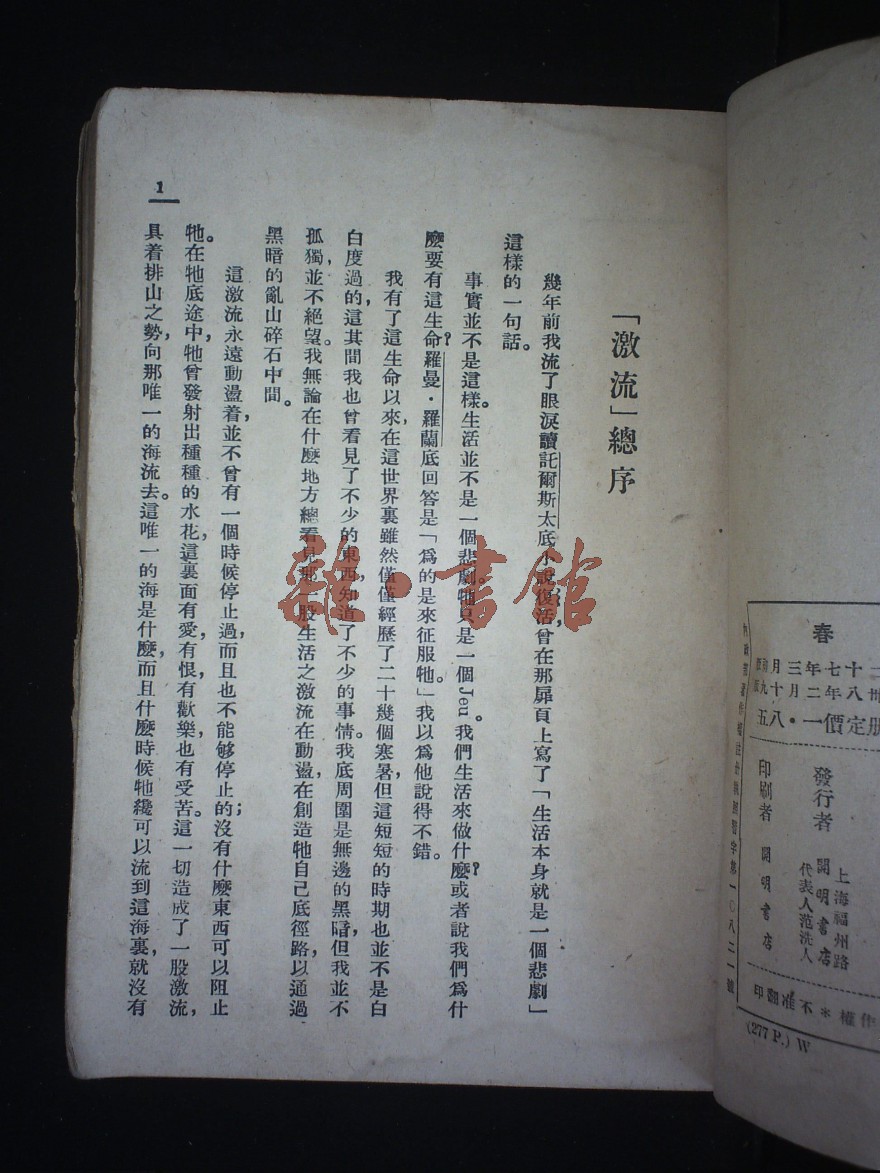 「激流」總序
幾年前我流了眼淚讀託爾斯太底小說復活，曾在那扉頁上寫了「生活本身就是一個悲劇」
這樣的一句話。
事實並不是這樣。生活並不是一個悲劇。牠只是一個Jeu。我們生活來做什麼？或者說我們爲什
麼要有這生命？羅曼·羅蘭底回答是「爲的是來征服牠。」我以爲他說得不錯。
我有了這生命以來，在這世界裏雖然僅僅經歷了二十幾個寒暑，但這短短的時期也並不是白
白度過的，這其間我也曾看見了不少的東西，知道了不少的事情。我底周圍是無邊的黑暗，但我並不
孤獨，並不絕望。我無論在什麼地方總看見那一股生活之激流在動盪，在創造牠自己底徑路，以通過
黑暗的亂山碎石中間。
這激流永遠動盪着，並不曾有一個時候停止過，而且也不能够停止的；沒有什麼東西可以阻止
牠。在牠底途中，牠曾發射出種種的水花，這裏面有愛，有恨，有歡樂，也有受苦。這一切造成了一股激流，
具着排山之勢，向那唯一的海流去。這唯一的海是什麼，而且什麼時候牠纔可以流到這海裏，就沒有
1
春
月三年七十二
九十月二年八卅
册定價一·八五
發行者
上海福州路
開明書店
代表人范洗人
印刷者 開明書店
作權＊不准翻印
(277 P.) W
雜·書館